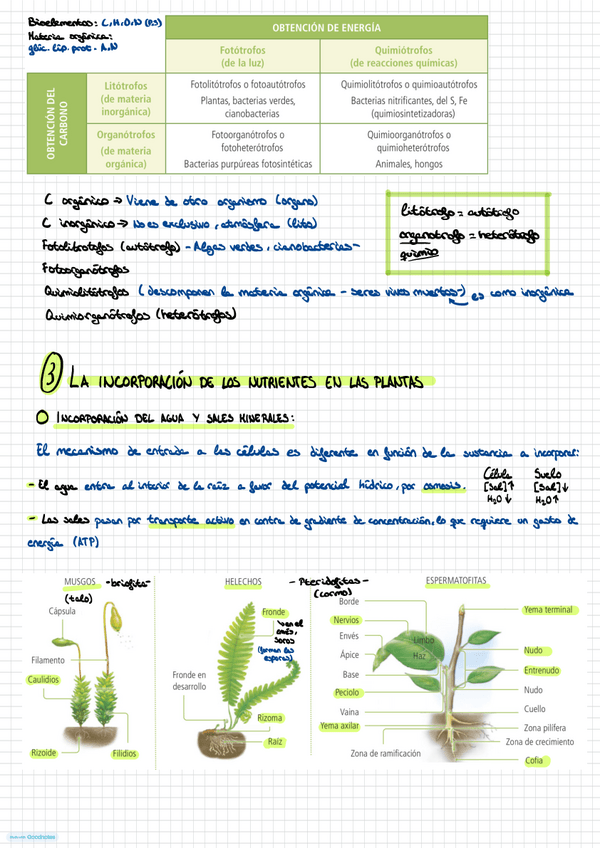 Bioelementos: C, H, O, N (P, S)
Materia orgánica:
glúc. líp. prot. A.N
OBTENCIÓN DE ENERGÍA
Fotótrofos
(de la luz)
Quimiótrofos
(de reacciones químicas)
OBTENCIÓN DEL
CARBONO
Litótrofos
(de materia
inorgánica)
Fotolitótrofos o fotoautótrofos
Plantas, bacterias verdes,
cianobacterias
Quimiolitótrofos o quimioautótrofos
Bacterias nitrificantes, del S, Fe
(quimiosintetizadoras)
Organótrofos
(de materia
orgánica)
Fotoorganótrofos o
fotoheterótrofos
Bacterias purpúreas fotosintéticas
Quimioorganótrofos o
quimioheterótrofos
Animales, hongos
C orgánico → Viene de otro organismo (organo)
C inorgánico → No es exclusivo, atmósfera (lito)
Fotolitotofos (autótrofo) - Algas verdes, cianobacterias-
Fotoorganótrofos
Quimiolitótrofos (descomponen la materia orgánica - seres vivos muertos-) es como inorgánica
Quimiorganótrofos (heterótrofos)
litótrofo = autótrofo
organotrofo = heterótrofo
quimio
3 LA INCORPORACIÓN DE LOS NUTRIENTES EN LAS PLANTAS
INCORPORACIÓN DEL AGUA Y SALES MINERALES:
El mecanismo de entrada a las células es diferente en función de la sustancia a incorporar:
- El agua entra al interior de la raíz a favor del potencial hídrico, por osmosis.
Célula
[Sal]↑
H₂O ↓
Suelo
[Sal]↓
H₂O ↑
- Las sales pasan por transporte activo en contra de gradiente de concentración, lo que requiere un gasto de
energía (ATP)
MUSGOS -briofita-
(talo)
Cápsula
Filamento
Caulidios
Rizoide
Filidios
HELECHOS - Pteridofitas -
(cormo)
Fronde
↳ en el
envés,
soros
(forman las
esporas)
Fronde en
desarrollo
Rizoma
Raíz
ESPERMATOFITAS
Borde
Nervios
Envés
Ápice
Base
Peciolo
Vaina
Yema axilar
Zona de ramificación
Limbo
Haz
Yema terminal
Nudo
Entrenudo
Nudo
Cuello
Zona pilífera
Zona de crecimiento
Cofia
Goodnotes